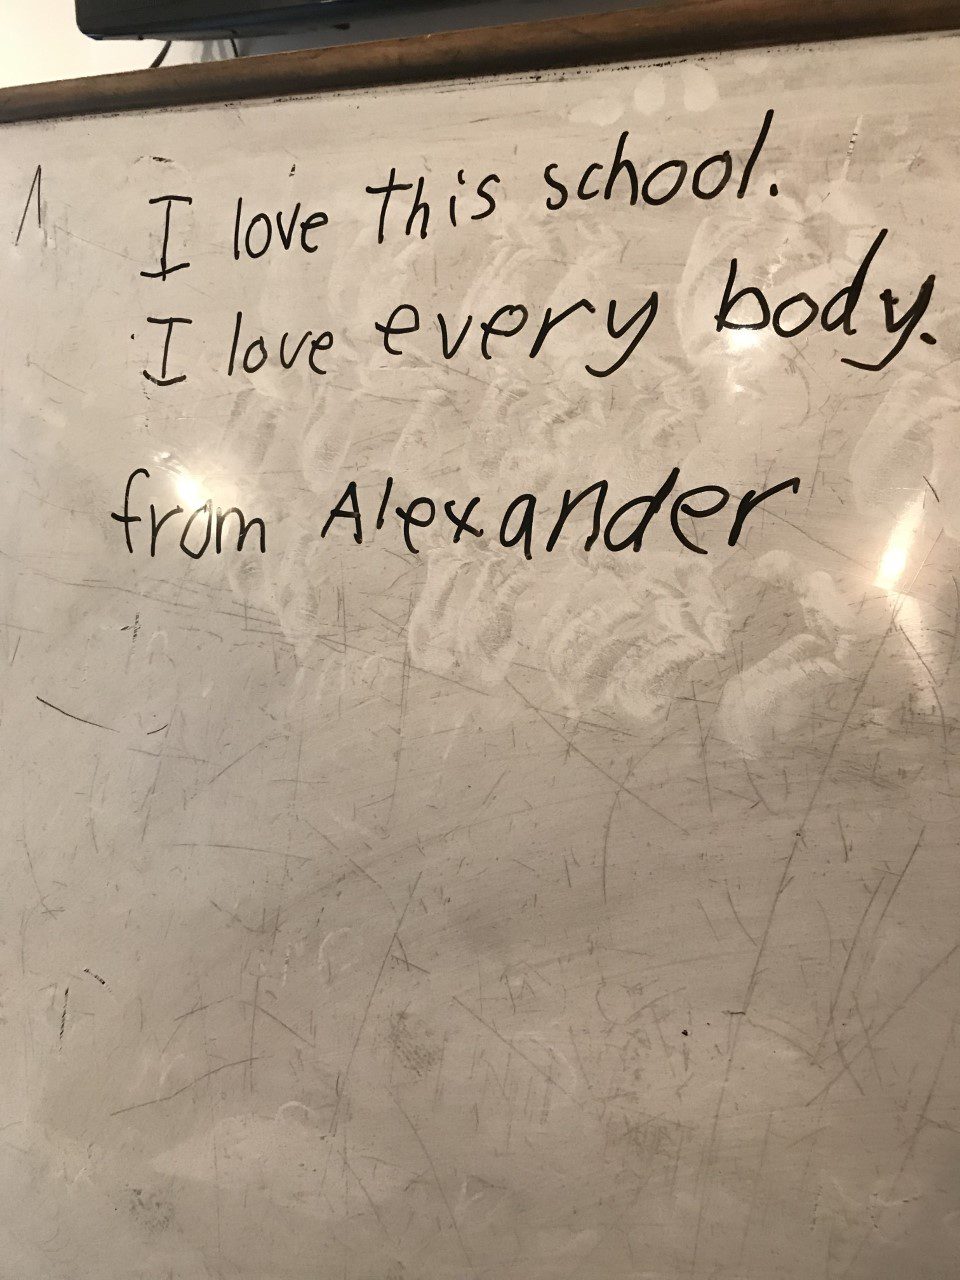 I love this school.
I love every body.
from Alexander